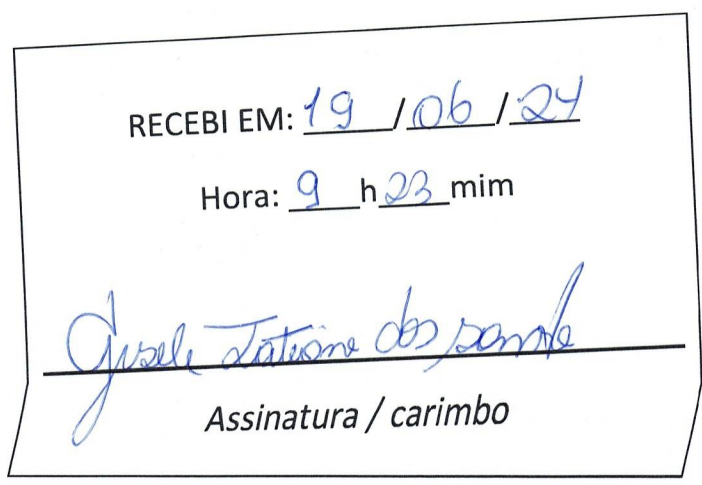 RECEBI EM: 19/06/24
Hora: 9 h 23 mim
Gisele Tatiane dos Santos
Assinatura / carimbo